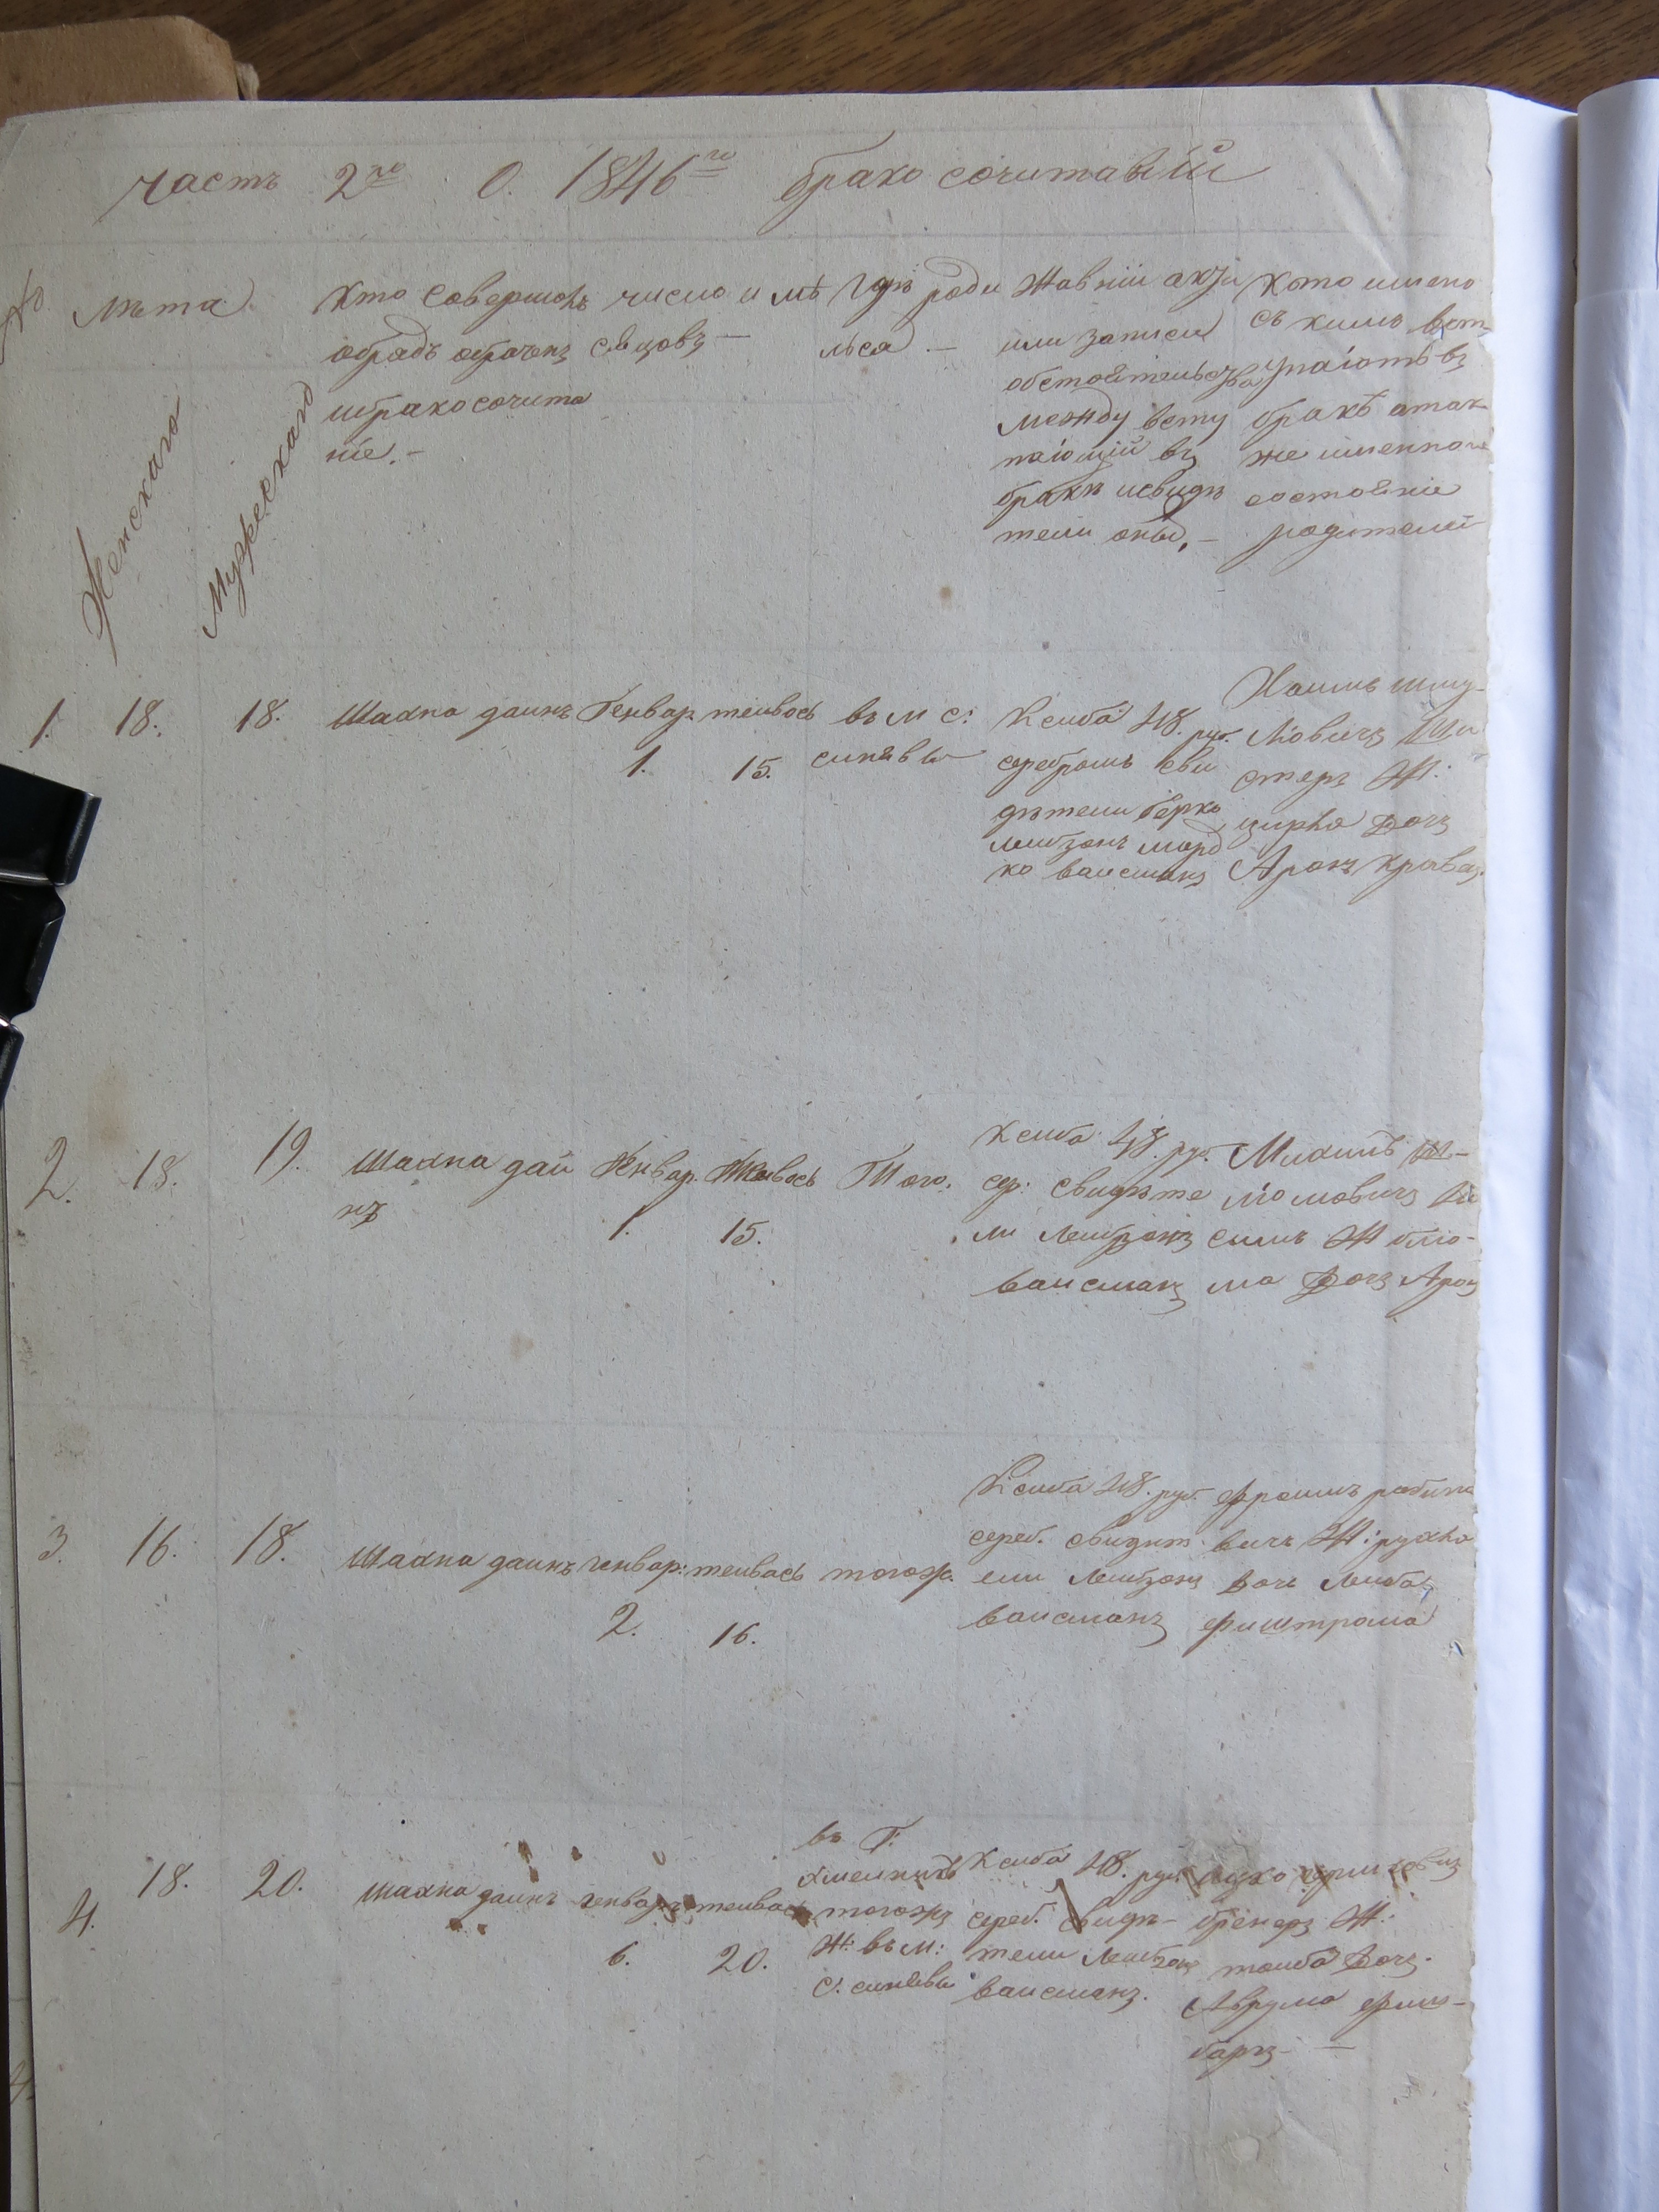 часть 2го О. 1846го брако сочитавіи
№ лѣта
Женскаго
Мужескаго
Кто совершилъ
обрадъ обраченъ
и брако сочита
ніе. –
число и мѣ
сяцовъ –
Гдѣ роди
лься –
Главніи акти
или записи
обстоятельства
между всту
паіощіи въ
бракъ и свидѣ
тели оны, –
Кто имено
съ кимъ вст-
упаіотъ въ
бракъ атак-
же именно
состояніе
родителей
1. 18. 18.
Шахна даинъ
Генвар. теивось
1. 15.
въ м с:
синявы
Ксиба 48. руб.
серебромъ сви
дѣтели Берко
леибзонъ морд
ко ваисманъ
Хаимъ шму-
люовичъ
стеръ Ж:
цирля дочъ
Аронъ Кравец.
2. 18. 19.
Шахна даи
нъ
Генвар. Теивось
1. 15.
Того.
Ксиба 48. руб.
сер: свидѣте
ли леибзонъ
ваисманъ
Михиль ш-
ломовичъ
симъ Ж блю-
ма дочъ Арон
3. 16. 18.
Шахна даинъ
генвар: теивась
2. 16.
тогож.
Ксиба 48. руб.
сереб. свидит
ели леибзонъ
ваисманъ
Фроимъ рабино
вичъ Ж: рухля
дочь леиба
Фиштрома
4. 18. 20.
Шахна даинъ
генваръ теивась
6. 20.
въ Г.
хмелникъ
тогожъ
Ж. въ м:
с. синявы
Ксиба 48. руб.
сереб. свидѣ-
тели леибзонъ
ваисманъ.
ицко
бренеръ Ж.
тоиба дочъ.
Аврума Фин-
барг –